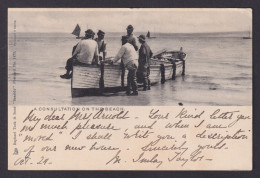 A CONSULTATION ON THE BEACH
My dear Miss Arnold - Your kind letter gave
me much pleasure and when I am
"moved" I shall write you a description
of our new house. Sincerely yours
Oct. 20. M. Taylor.